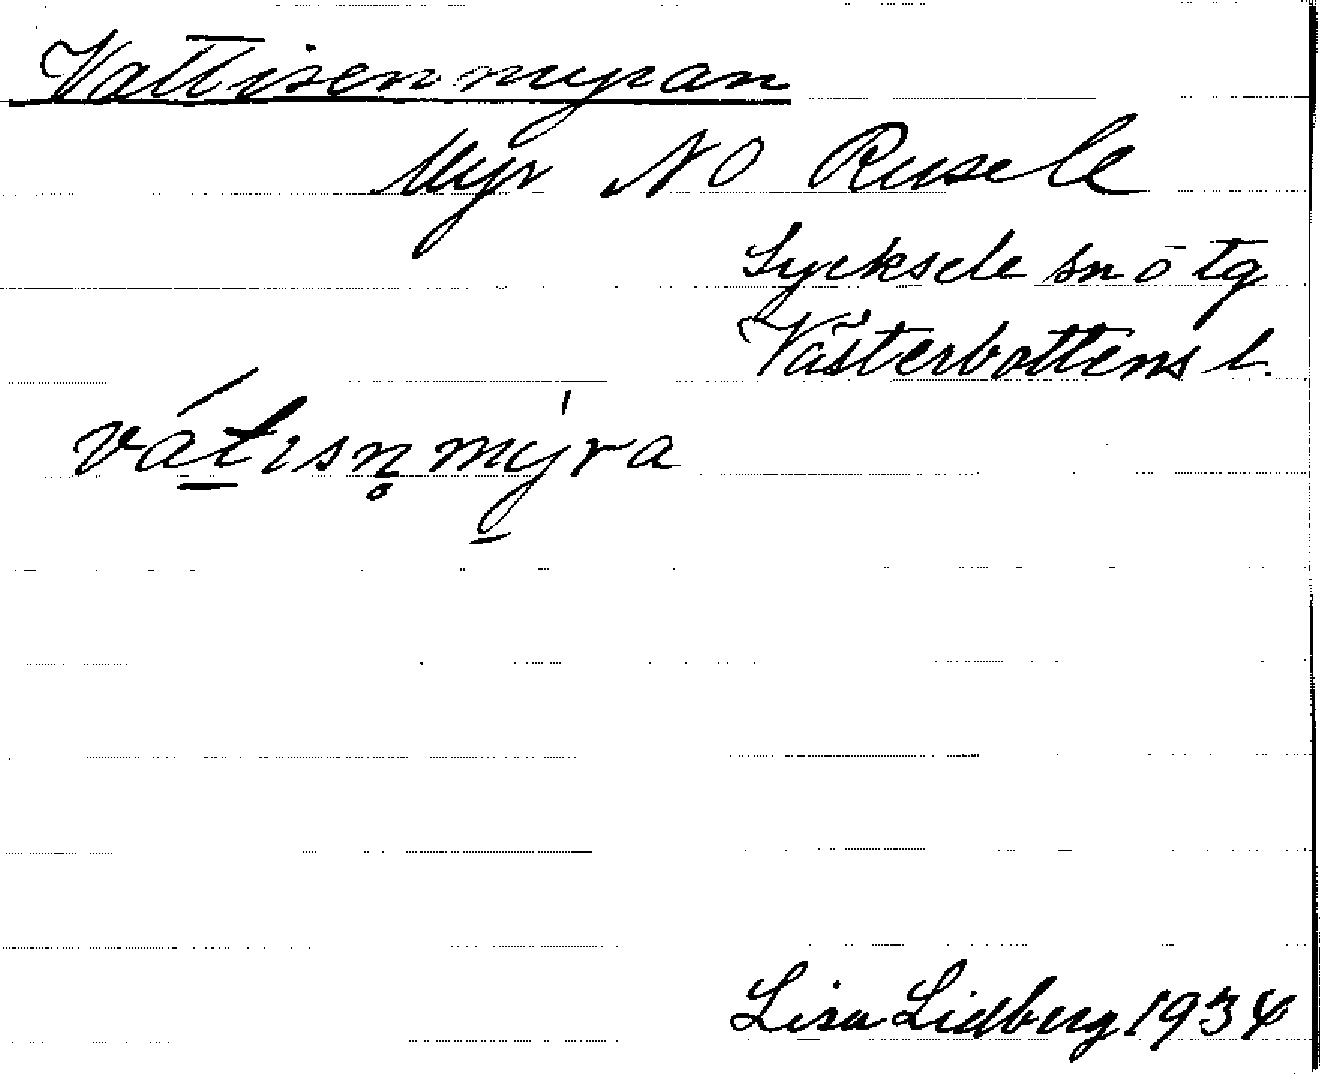 Vattisenmyran
Myr NO Rusele
Lycksele sn o tg
Västerbottens l.
vátısn̥mýra
Lisa Lidberg 1934